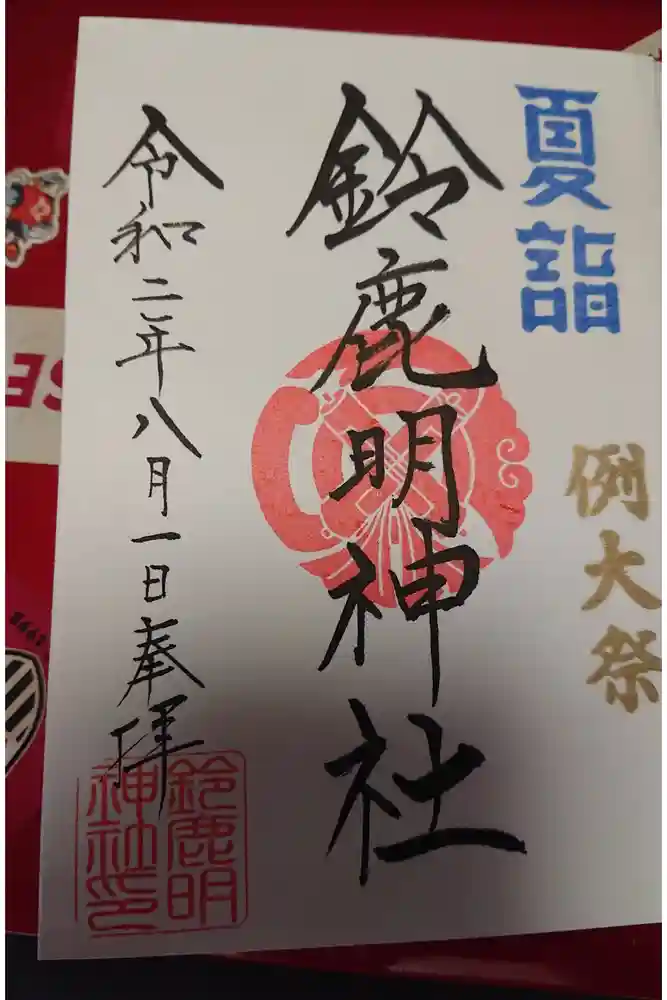 夏詣
例大祭
鈴鹿明神社
令和二年八月一日奉拝
鈴鹿明
神社印
1998